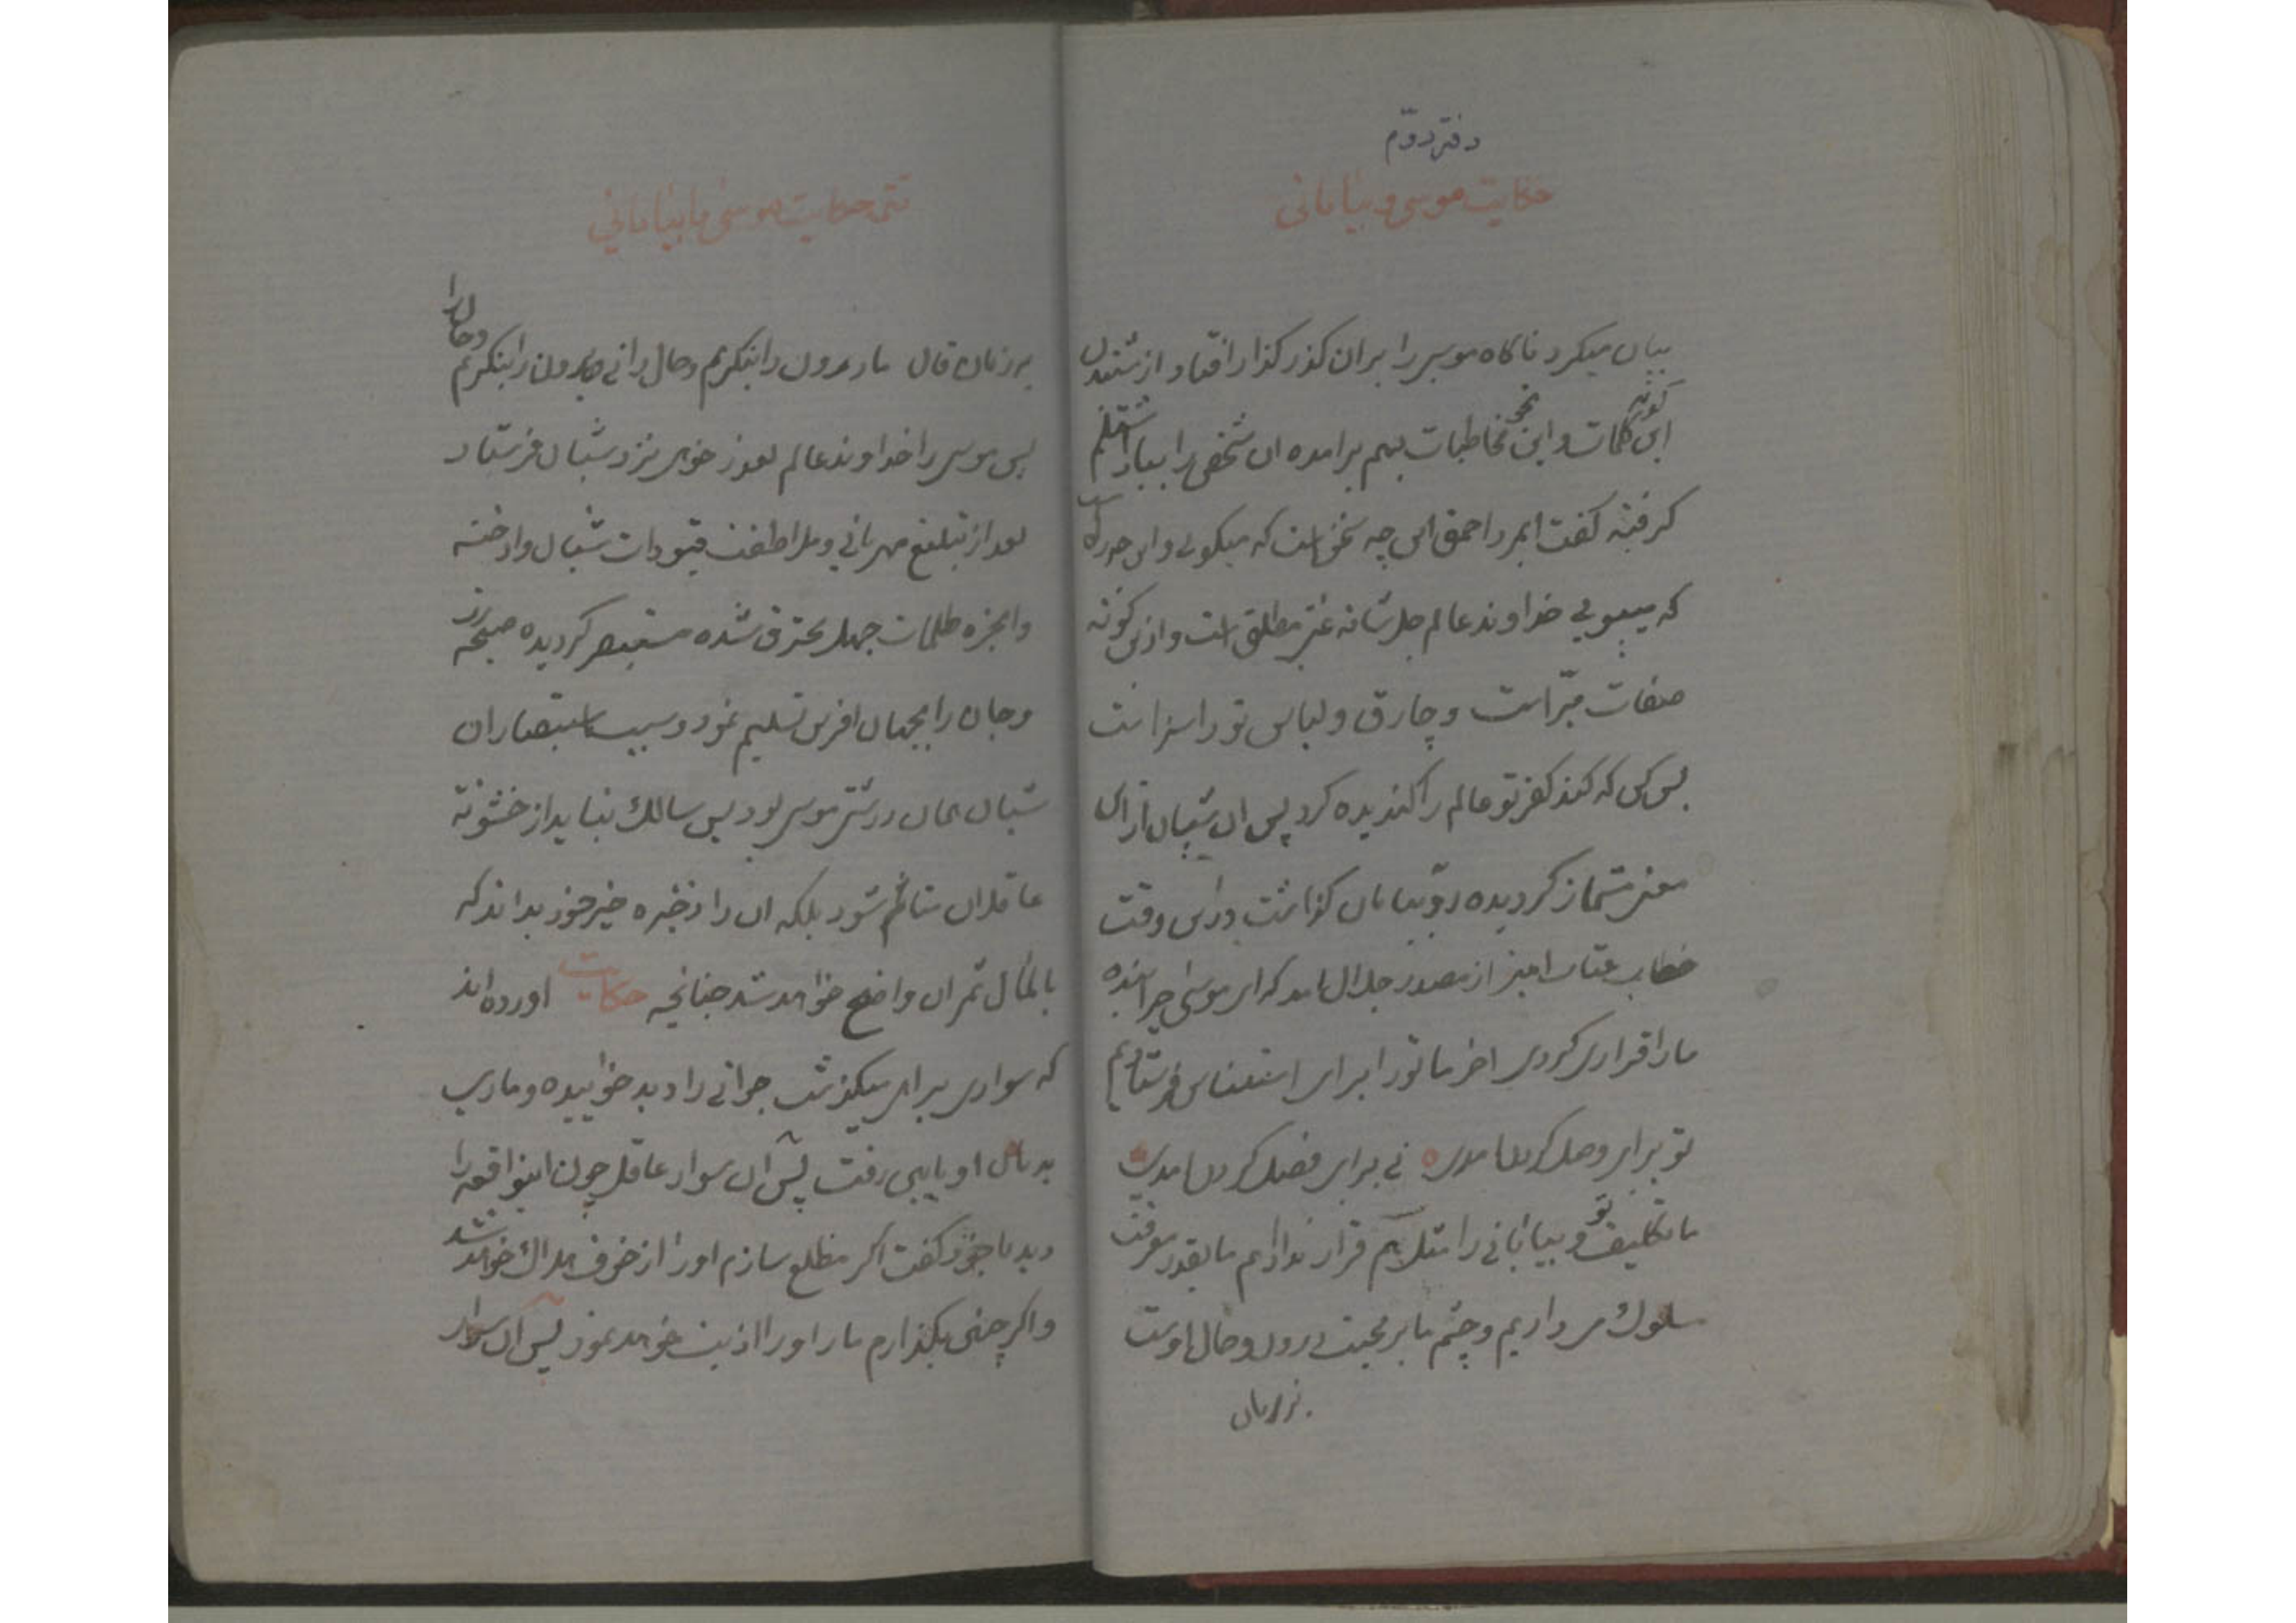 دفتر دوّم
حکایت موسی و بیابانی
بیان میکرد ناکاه موسی را بران کذر کذار افتاد از شنیدن
این کونه کلمات و این نحو مخاطبات بهم برامده ان شخص را بباد اشتلم
کرفته کفت ایمرد احمق این چه سخن است که میکوئی و این چه راه است
که میپوئی خداوند عالم جل شانه غنی مطلق است و ازین کونه
صفات مبّراست و چارق و لباس تو را سزاست
پس کس که کند کفر تو عالم را کندیده کرد پس ان شبان از این
معنی مشماز کردیده رو به بیابان کذاشت در این وقت
خطاب عتاب امیز از مصدر جلال امد که ای موسی چرا بنده
ما را فراری کردی اخر ما تو را برای فرستادیم
تو برای وصل کردن امدی نی برای فصل کردن امدی
ما تکلیف تو و بیابانی را مثل هم قرار نداده‌ایم ما بقدر معرفت
سلوک میداریم و چشم ما بر محبت درون و حال اوست
نه زبان
تتمه حکایت موسی با بیابانی
نه زبان و قال ما درون را بنکریم و حال را نی برون را بنکریم و قال را
پس موسی را خداوند عالم بعذر خواهی نزد شبان فرستاد
بعد از تبلیغ مهربانی و ملاطفت قیودات شبان واخته
وابخره ظلمات جهل محترق شده مستبصر کردیده صیحه زد
و جان را بجهان افرین تسلیم نمود و سبب استبصار ان
شبان همان درشتی موسی بود پس سالک نباید از خشونة
عاقلان متالم شود بلکه ان را ذخیره خیر خود بداند که
بالمال ثمر ان واضح خواهد شد چنانچه حکایت اورده اند
که سواری براهی میکذشت جوانی را دید خوابیده و ماری
بدهان او پایین رفت پس آن سوار عاقل چون اینواقعه را
دید با خود کفت اکر مطلع سازم او را از خوف هلاک خواهد شد
و اکر چنین بکذارم مار او را اذیت خواهد نمود پس آن سوار